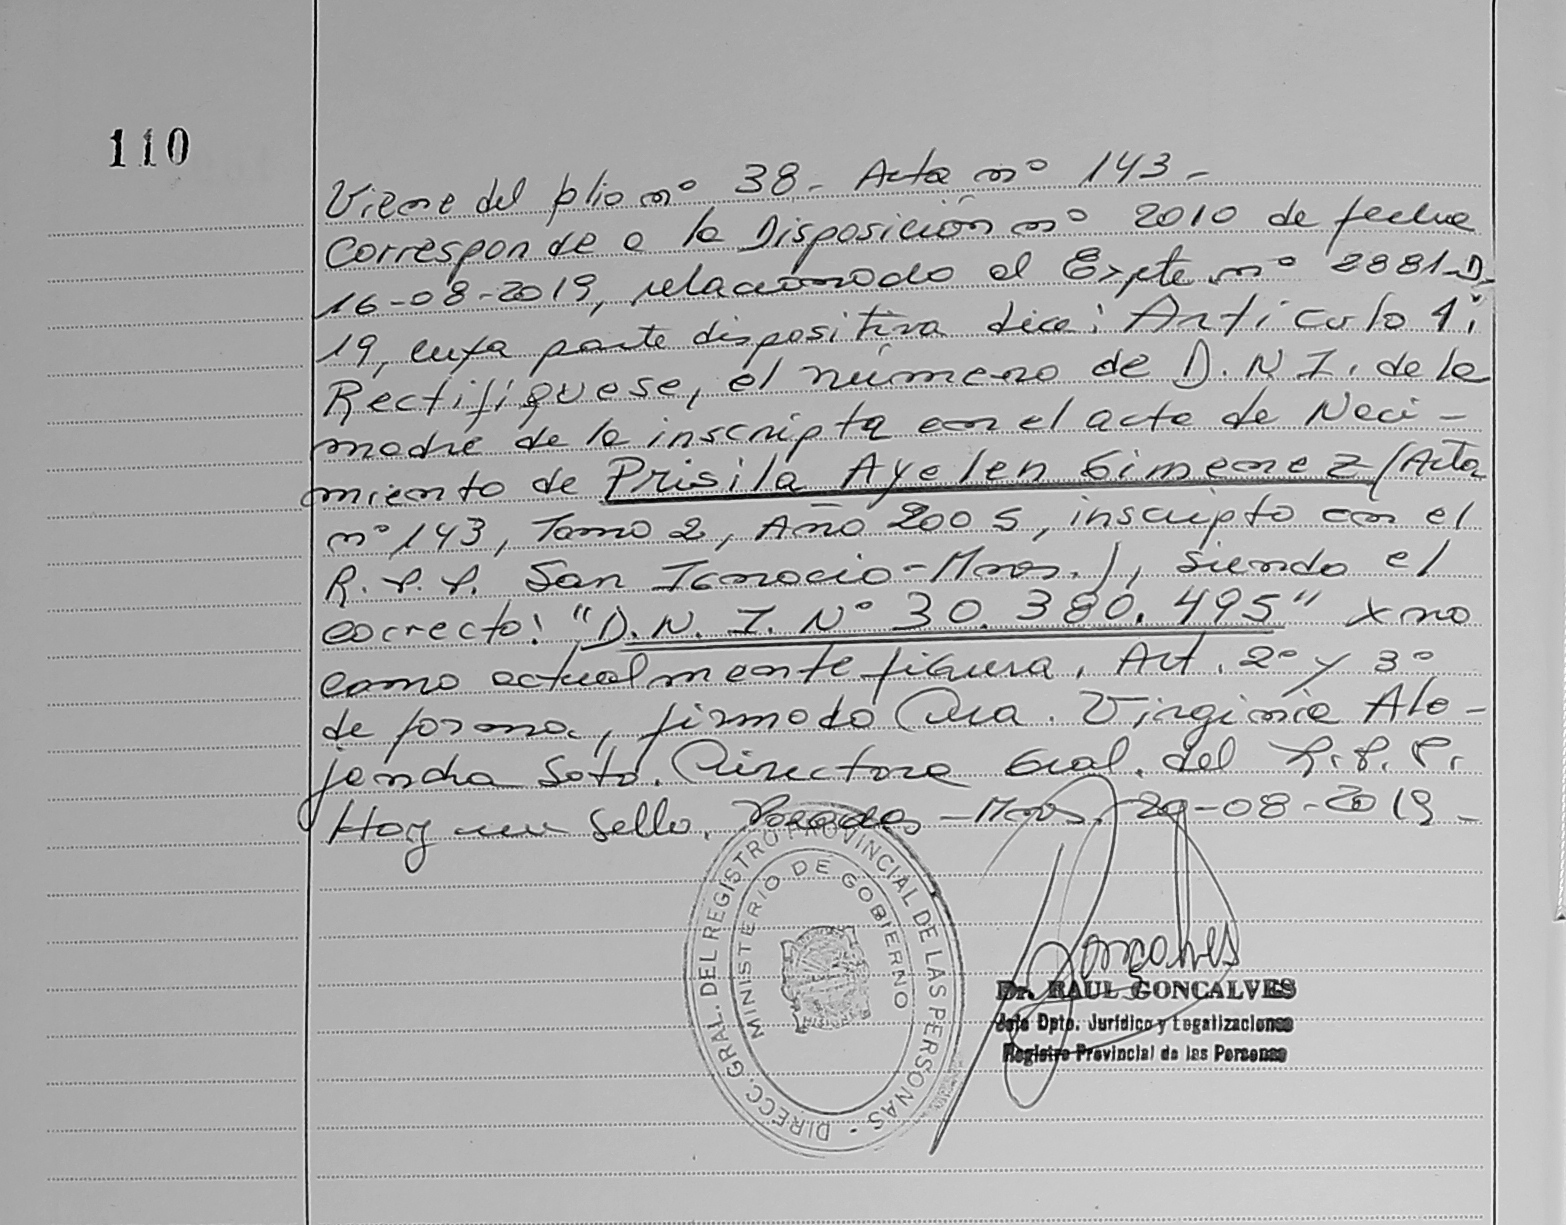 110
Viene del folio nº 38 - Acta nº 143 -
Corresponde a la Disposición nº 2010 de fecha
16-08-2019, relacionado al Expte. nº 2881-D-
19, cuya parte dispositiva dice: Artículo 1º:
Rectifíquese, el número de D.N.I. de la
madre de la inscripta en el acta de Naci-
miento de Prisila Ayelen Gimenez (Acta
nº 143, Tomo 2, Año 2005, inscripto en el
R.P.P. San Ignacio - Mnes.), siendo el
correcto: "D.N.I. Nº 30.380.495" y no
como actualmente figura. Art. 2º y 3º
de forma, firmado Dra. Virginia Ale-
jandra Soto. Directora Gral. del R.P.P.
Hay un sello. Posadas - Mnes. 29-08-2019 -
DIRECC. GRAL. DEL REGISTRO PROVINCIAL DE LAS PERSONAS -
MINISTERIO DE GOBIERNO
Goncalves
Dr. RAUL GONCALVES
Jefe Dpto. Jurídico y Legalizaciones
Registro Provincial de las Personas